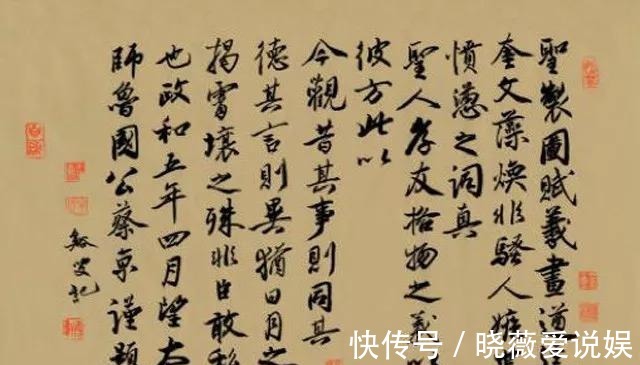 聖製圖賦羲畫道
奎文藻煥非騷人嫉
憤懣之詞真
聖人孝友格物之義
彼方此以
今觀昔其事則同其
德其言則異猶日月之
揭霄壤之殊非臣敢私
也政和五年四月望太
師魯國公蔡京謹題
谿叟記
快传号／晓薇爱说娱